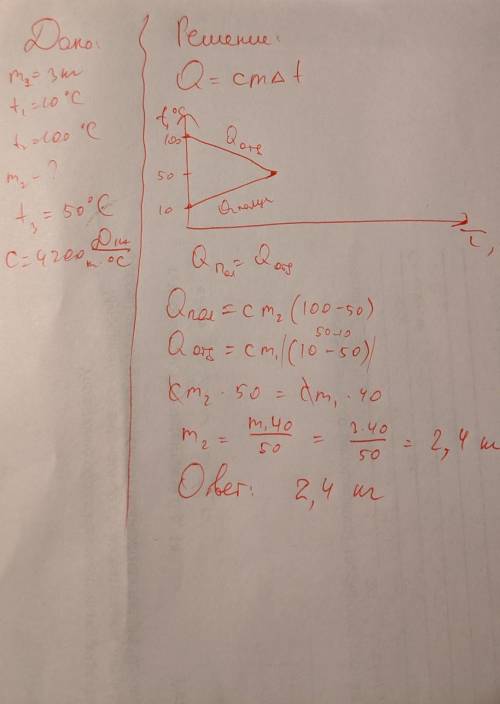 Дано:
m₁ = 3 кг
t₁ = 10 °C
t₂ = 100 °C
m₂ - ?
t₃ = 50 °C
C = 4200 Дж/кг·°C
Решение:
Q = cmΔt
t, °C
100
50
10
Qотд
Qполуч
τ,
Qпол = Qотд
Qпол = cm₂ (100 - 50)
50-10
Qотд = cm₁ |(10 - 50)|
cm₂ · 50 = cm₁ · 40
m₂ = m₁·40/50 = 3·40/50 = 2,4 кг
Ответ: 2,4 кг